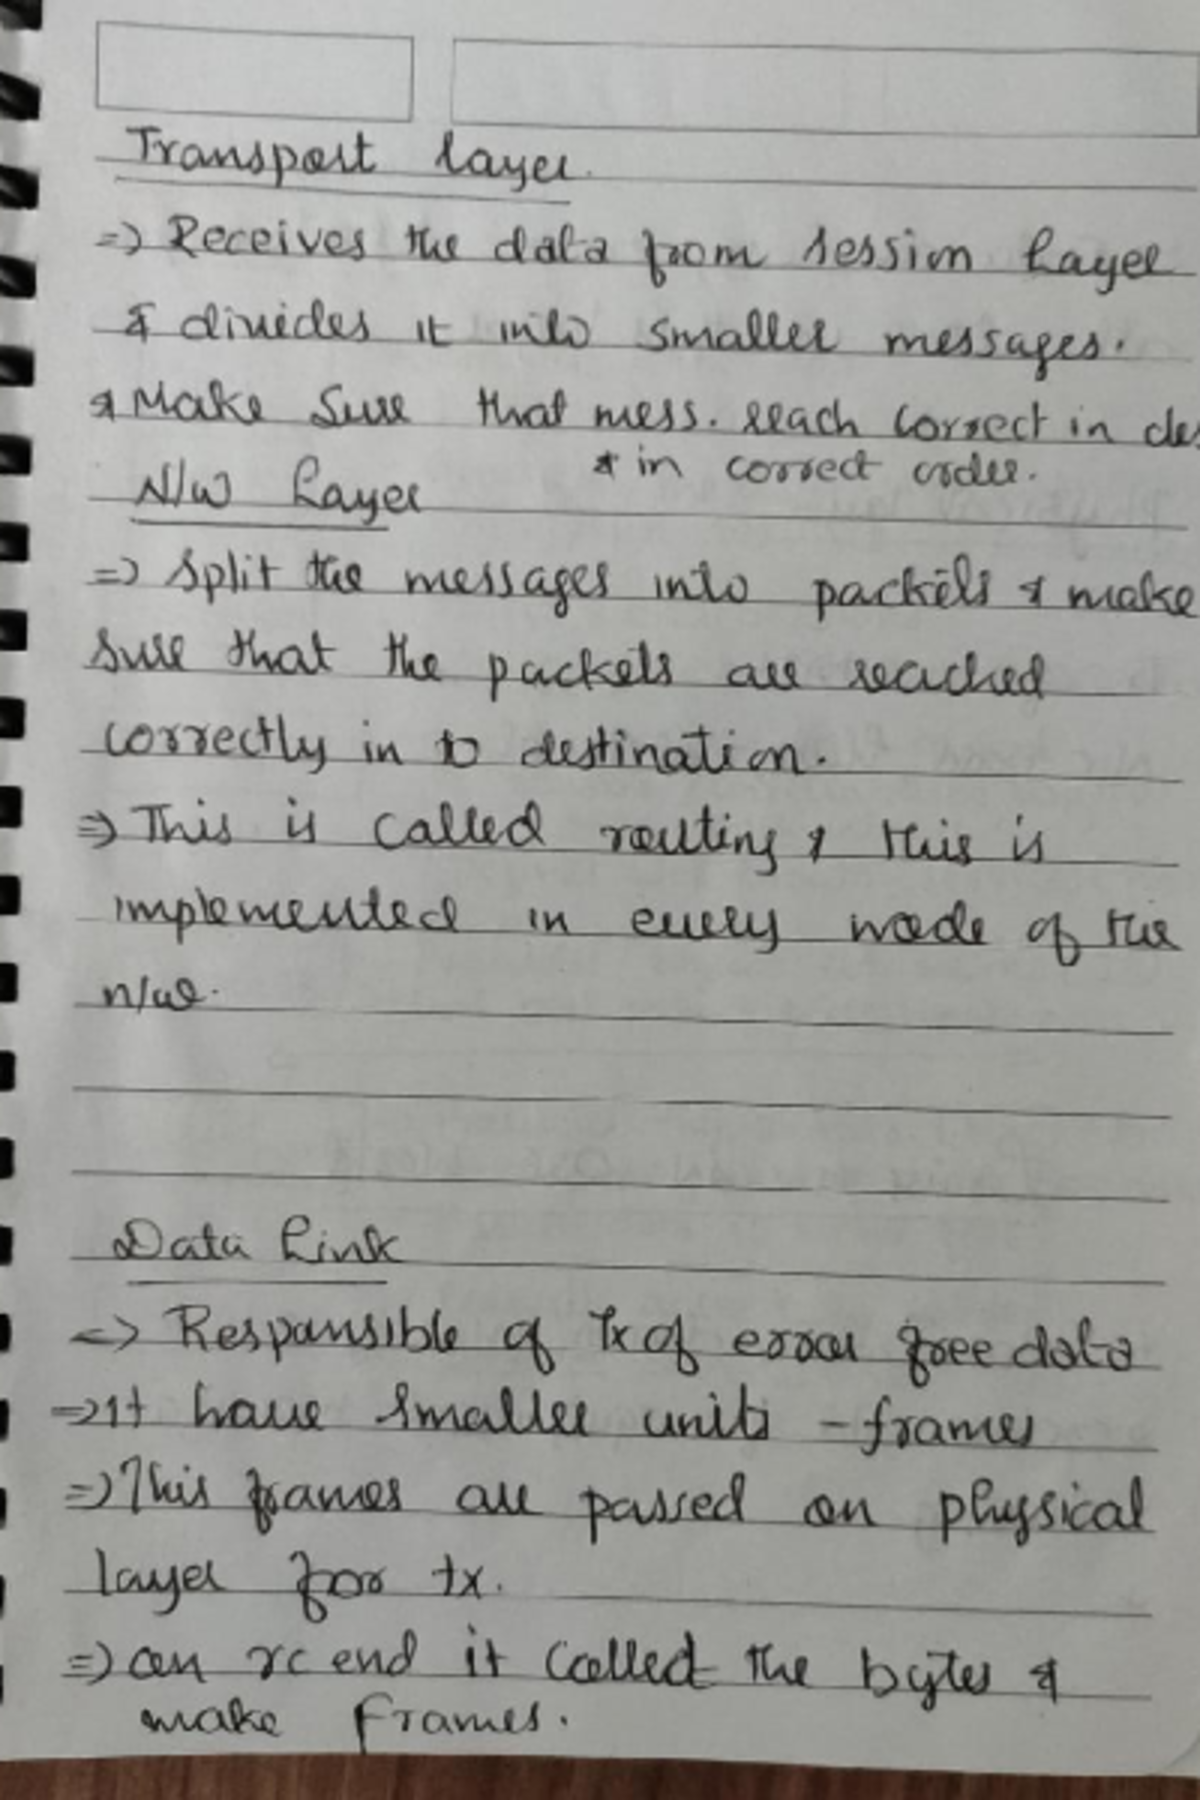 Transport layer.
=> Receives the data from session layer
& divides it into smaller messages.
& Make Sure that mess. reach correct in des
& in correct order.
N/w Layer
=> Split the messages into packets & make
sure that the packets are reached
correctly in to destination.
=> This is called routing & this is
implemented in every node of the
n/w.
Data Link
=> Responsible of Tx of error free data
=> It have smaller units - frames
=> This frames are passed on physical
layer for tx.
=> on rc end it called the bytes &
make frames.